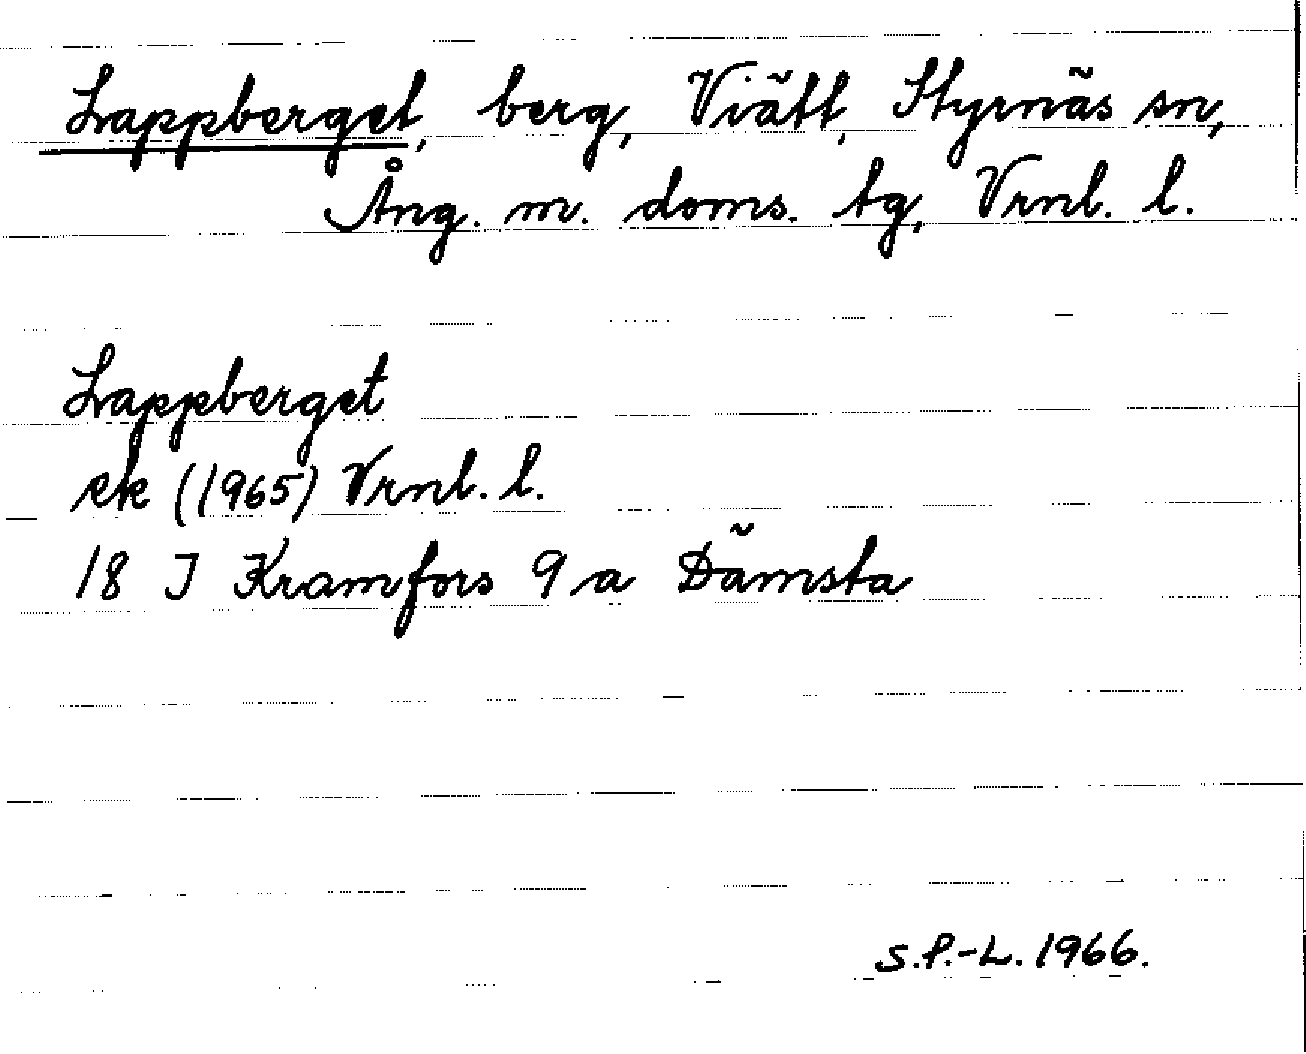 Lappberget, berg, Viätt, Styrnäs sn,
Ång. m. doms. tg, Vrnl. l.
Lappberget
ek (1965) Vrnl. l.
18 J Kramfors 9 a Dämsta
S.P.-L. 1966.